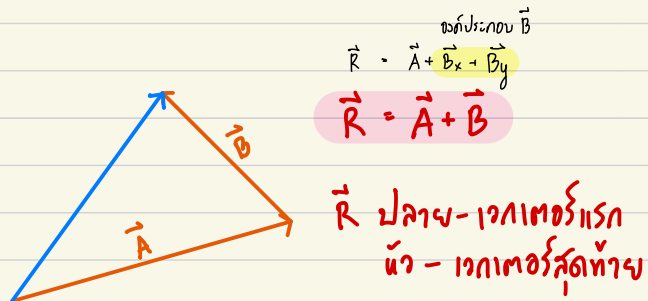 องค์ประกอบ B⃗
R⃗ = A⃗ + B⃗x + B⃗y
R⃗ = A⃗ + B⃗
B⃗
A⃗
R⃗ ปลาย - เวกเตอร์แรก
หัว - เวกเตอร์สุดท้าย